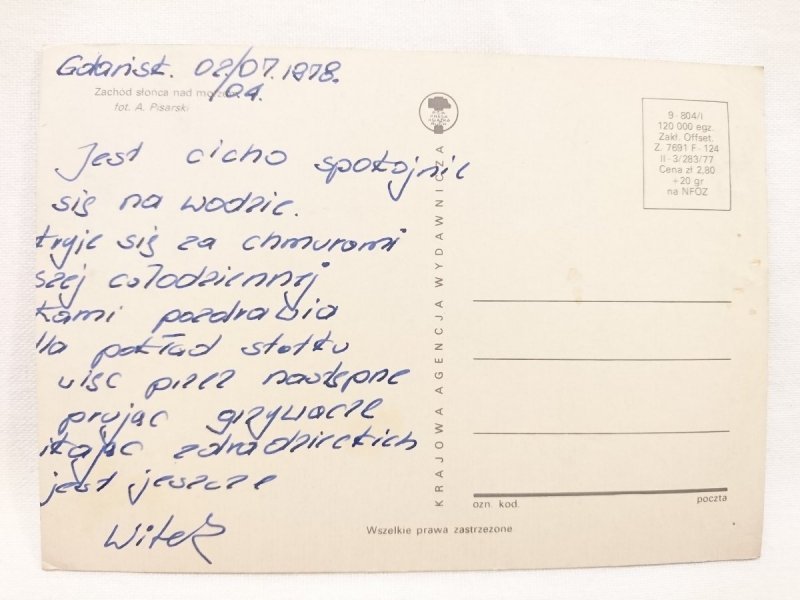 Gdańsk. 02/07.1978.
Zachód słońca nad morzem
fot. A. Pisarski
Jest cicho spokojnie
się na wodzie.
kryje się za chmurami
szej całodziennej
kami pozdrawia
lla pokład statku
uisc przez następne
prując grzywacze
itając zdradzieckich
jest jeszcze
Witek
KRAJOWA AGENCJA WYDAWNICZA
RSW
PRASA
KSIĄŻKA
RUCH
9-804/I
120 000 egz.
Zakł. Offset.
Z. 7691 F-124
II-3/283/77
Cena zł 2,80
+20 gr
na NFOZ
ozn. kod.
poczta
Wszelkie prawa zastrzeżone